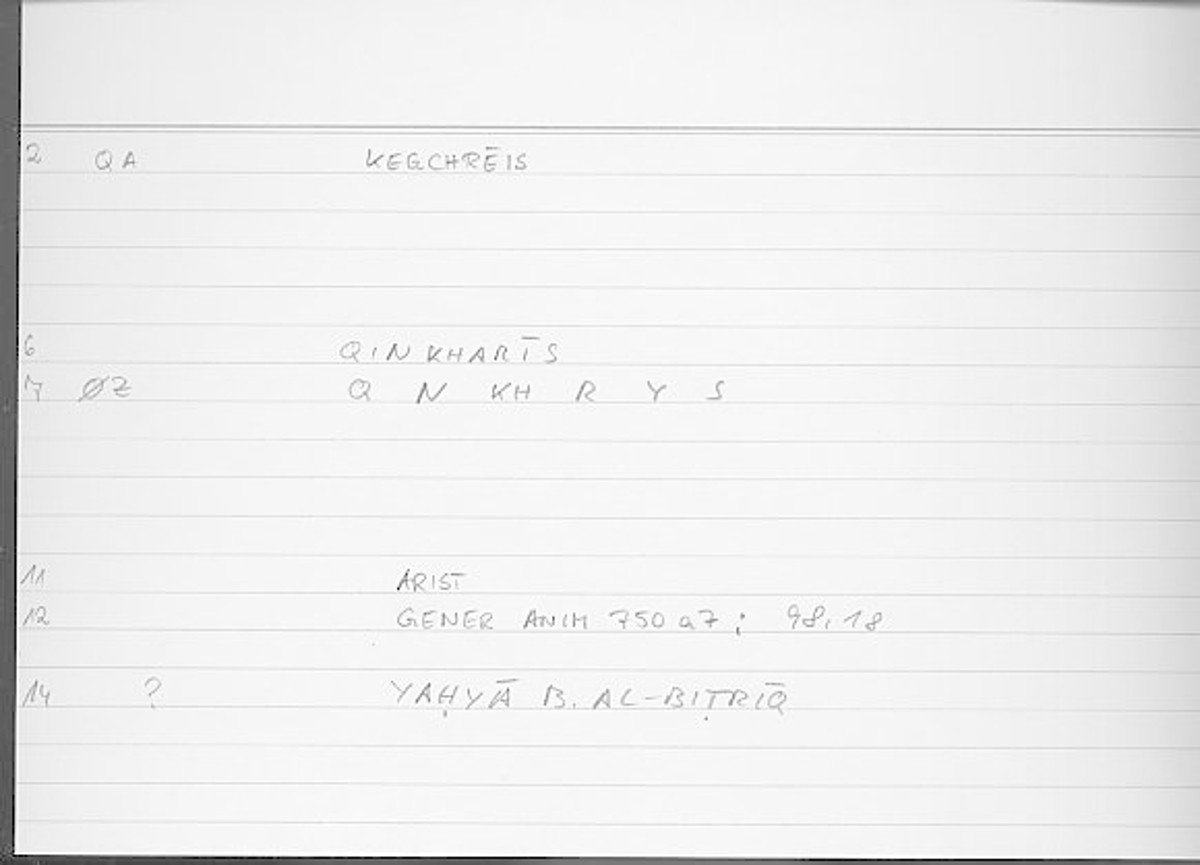 2 QA KEGCHRĒIS
6 QINKHARĪS
7 ØZ Q N KH R Y S
11 ARIST
12 GENER ANIM 750 a7 ; 98,18
14 ? YAḤYĀ B. AL-BIṬRĪQ